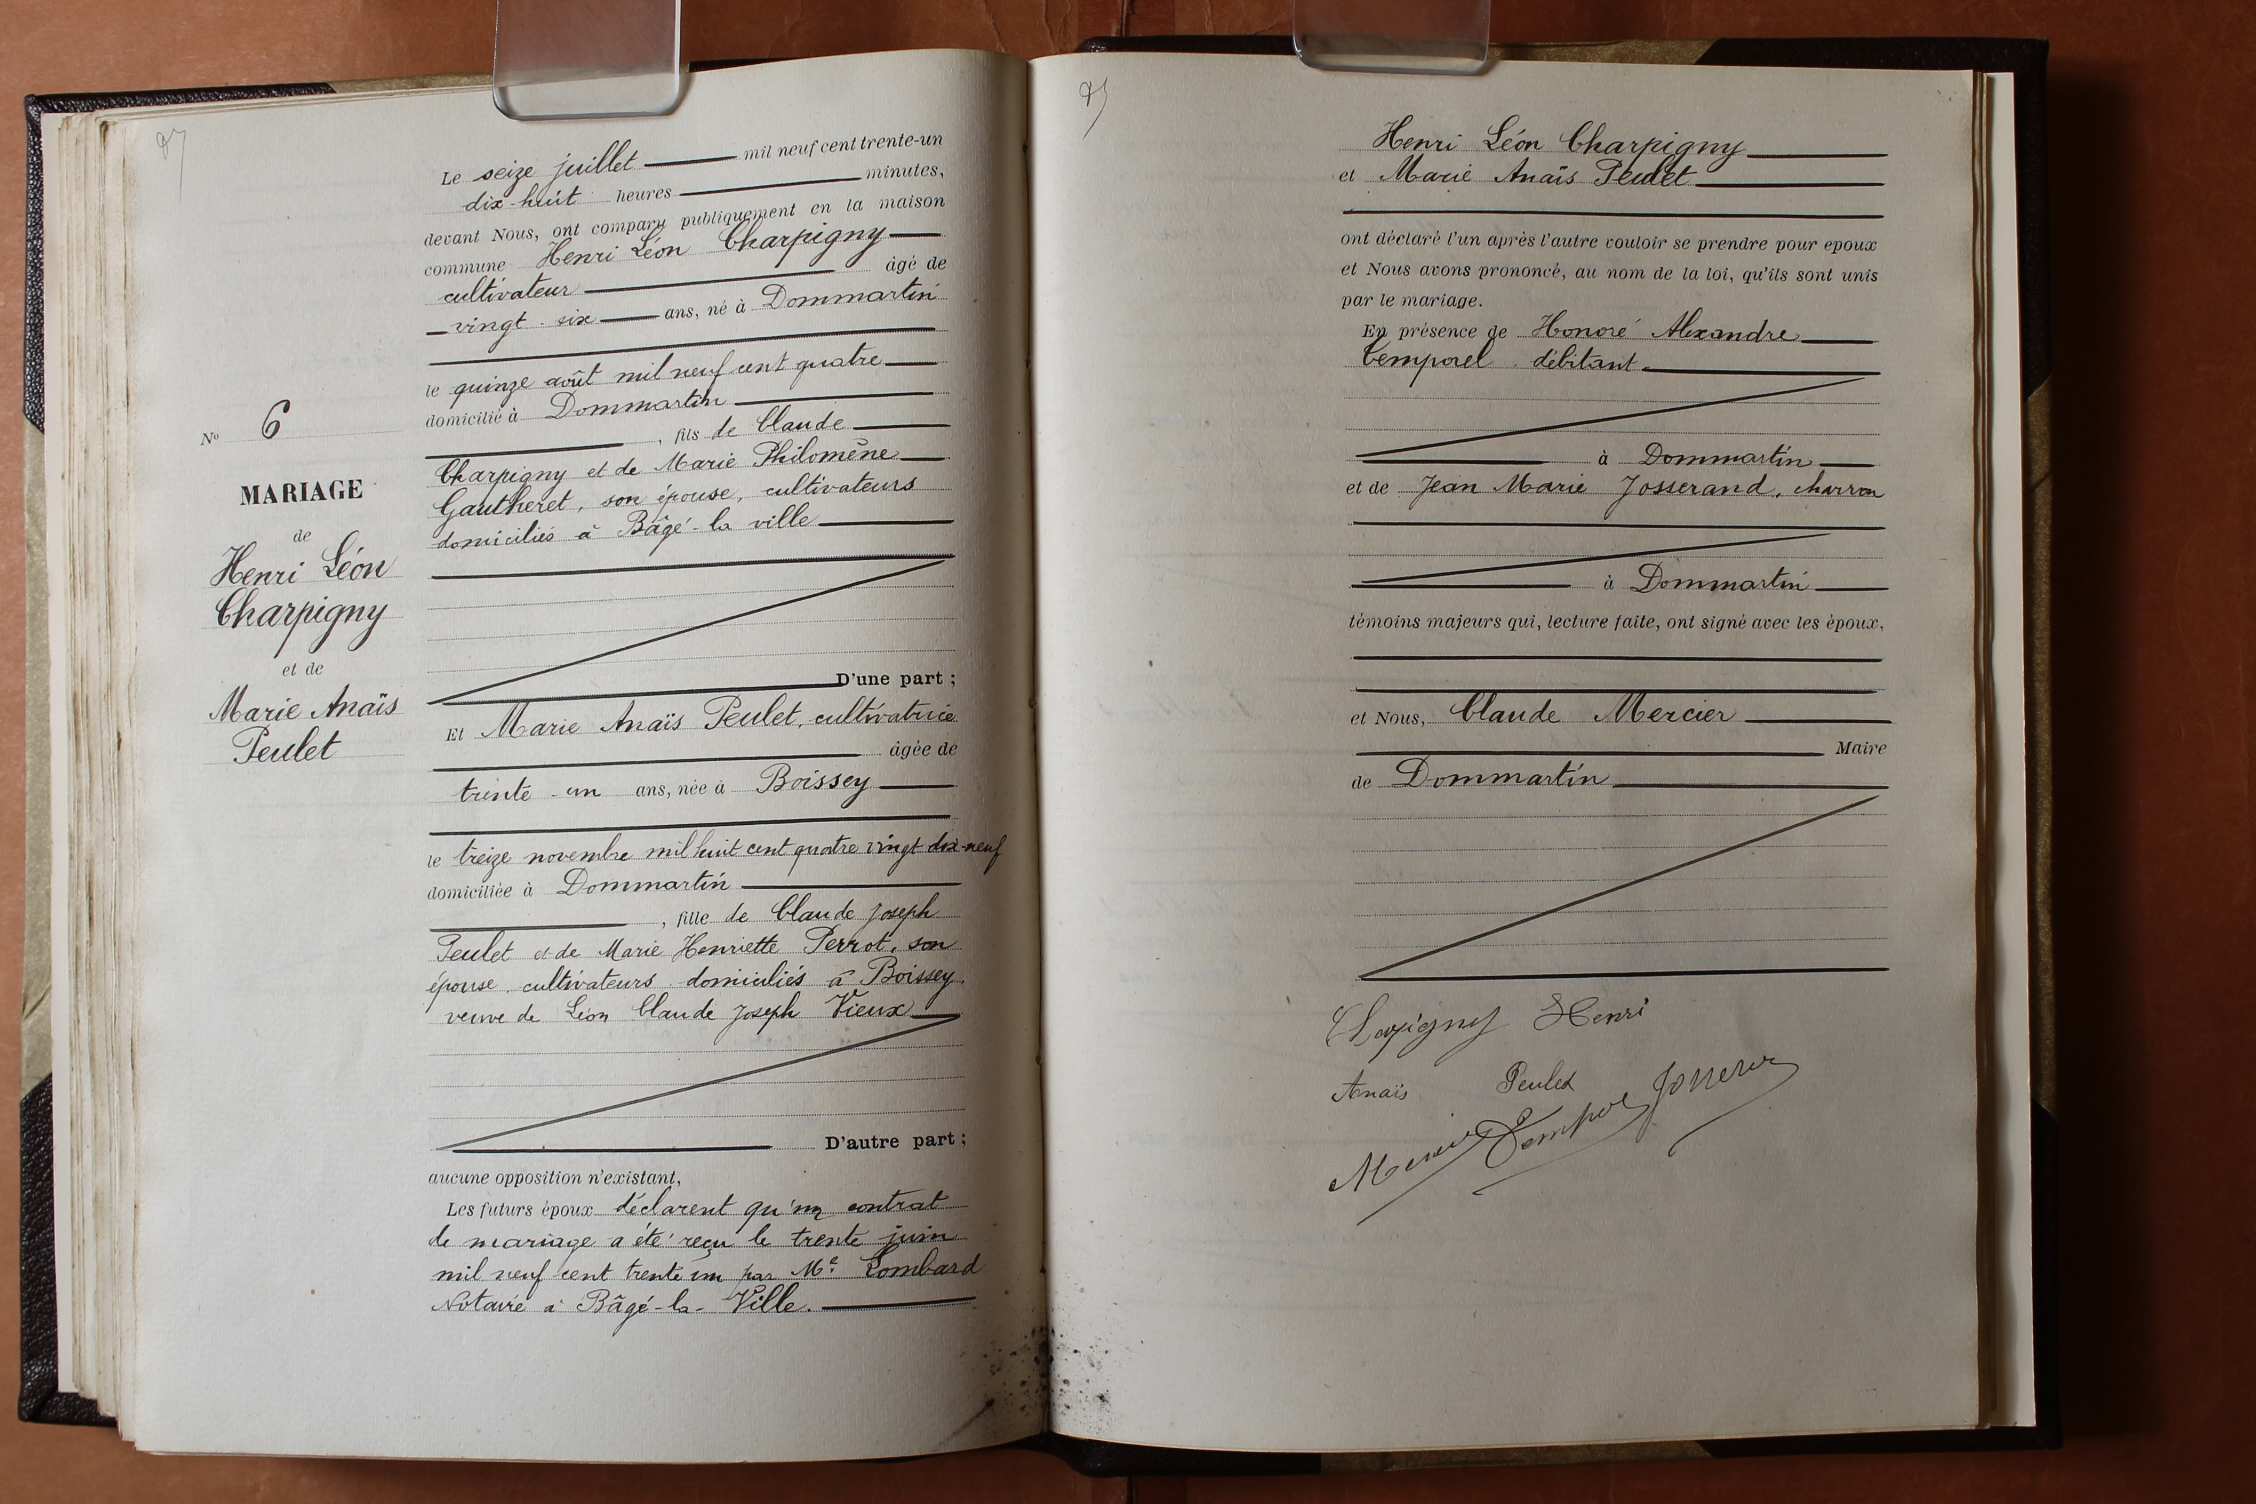 Le seize juillet mil neuf cent trente-un
dix-huit heures minutes,
devant Nous, ont comparu publiquement en la maison
commune Henri Léon Charpigny
cultivateur âgé de
vingt-six ans, né à Dommartin
le quinze août mil neuf cent quatre
domicilié à Dommartin
, fils de Claude
Charpigny et de Marie Philomène
Gautheret, son épouse, cultivateurs
domiciliés à Bâgé-la ville
N° 6
MARIAGE
de
Henri Léon
Charpigny
et de
Marie Anaïs
Peulet
D'une part ;
Et Marie Anaïs Peulet, cultivatrice
âgée de
trente-un ans, née à Boissey
le treize novembre mil huit cent quatre vingt dix-neuf
domiciliée à Dommartin
, fille de Claude Joseph
Peulet et de Marie Henriette Perrot, son
épouse, cultivateurs domiciliés à Boissey,
veuve de Léon Claude Joseph Vieux
D'autre part ;
aucune opposition n'existant,
Les futurs époux déclarent qu'un contrat
de mariage a été reçu le trente juin
mil neuf cent trente un par Me Lombard
Notaire à Bâgé-la-Ville.
Henri Léon Charpigny
et Marie Anaïs Peulet
ont déclaré l'un après l'autre vouloir se prendre pour epoux
et Nous avons prononcé, au nom de la loi, qu'ils sont unis
par le mariage.
En présence de Honoré Alexandre
Temporel, débitant
à Dommartin
et de Jean Marie Josserand, charron
à Dommartin
témoins majeurs qui, lecture faite, ont signé avec les époux,
et Nous, Claude Mercier
Maire
de Dommartin
Charpigny Henri
Anaïs Peulet
Mercier Temporel Josserand